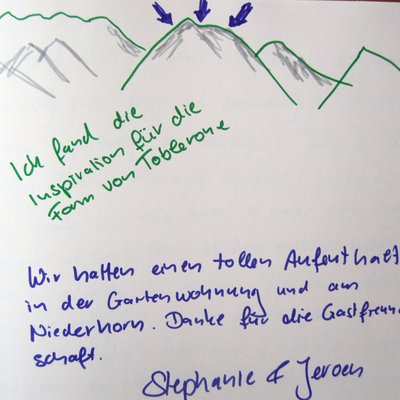 Ich fand die
Inspiration für die
Form von Toblerone
Wir hatten einen tollen Aufenthalt
in der Gartenwohnung und am
Niederhorn. Danke für die Gastfreund
schaft.
Stephanie & Jeroen